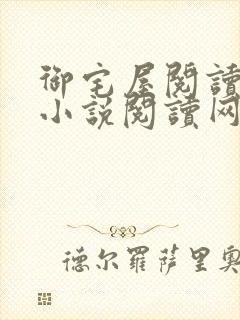 御宅屋閱讀
小說閱讀网
德尔羅萨里奧